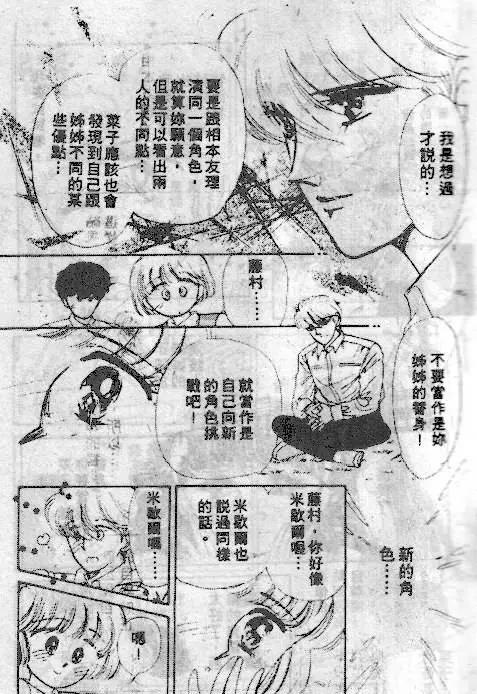 我是想過
才說的…
要是跟相本友理
演同一個角色，
就算妳願意，
但是可以看出兩
人的不同點…
菜子應該也會
發現到自己跟
姊姊不同的某
些優點…
藤村……
不要當作是妳
姊姊的替身！
就當作是
自己向新
的角色挑
戰吧！
新的角
色……
藤村，你好像
米歇爾喔…
米歇爾也
說過同樣
的話。
米歇爾喔……
嗯！